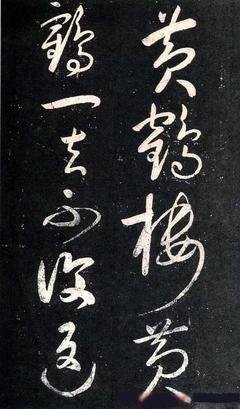 黃鶴樓黃
鶴一去不復返